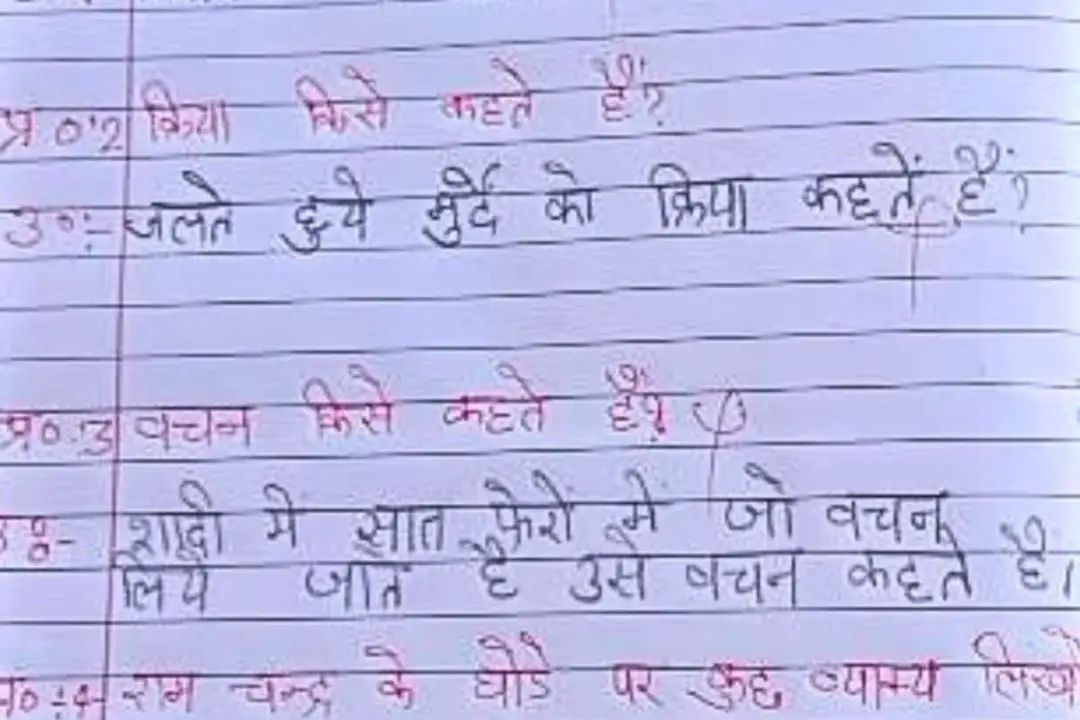 प्र०'2 क्रिया किसे कहते हैं?
उ०:- जलते हुये मुर्दे को क्रिया कहतें हैं?
प्र०.'3 वचन किसे कहते हैं?
उ०- शादी में सात फेरों में जो वचन
लिये जाते है उसे वचन कहते है।
प्र०:4- राम चन्द्र के घोडे पर कुछ व्याम्य लिखो